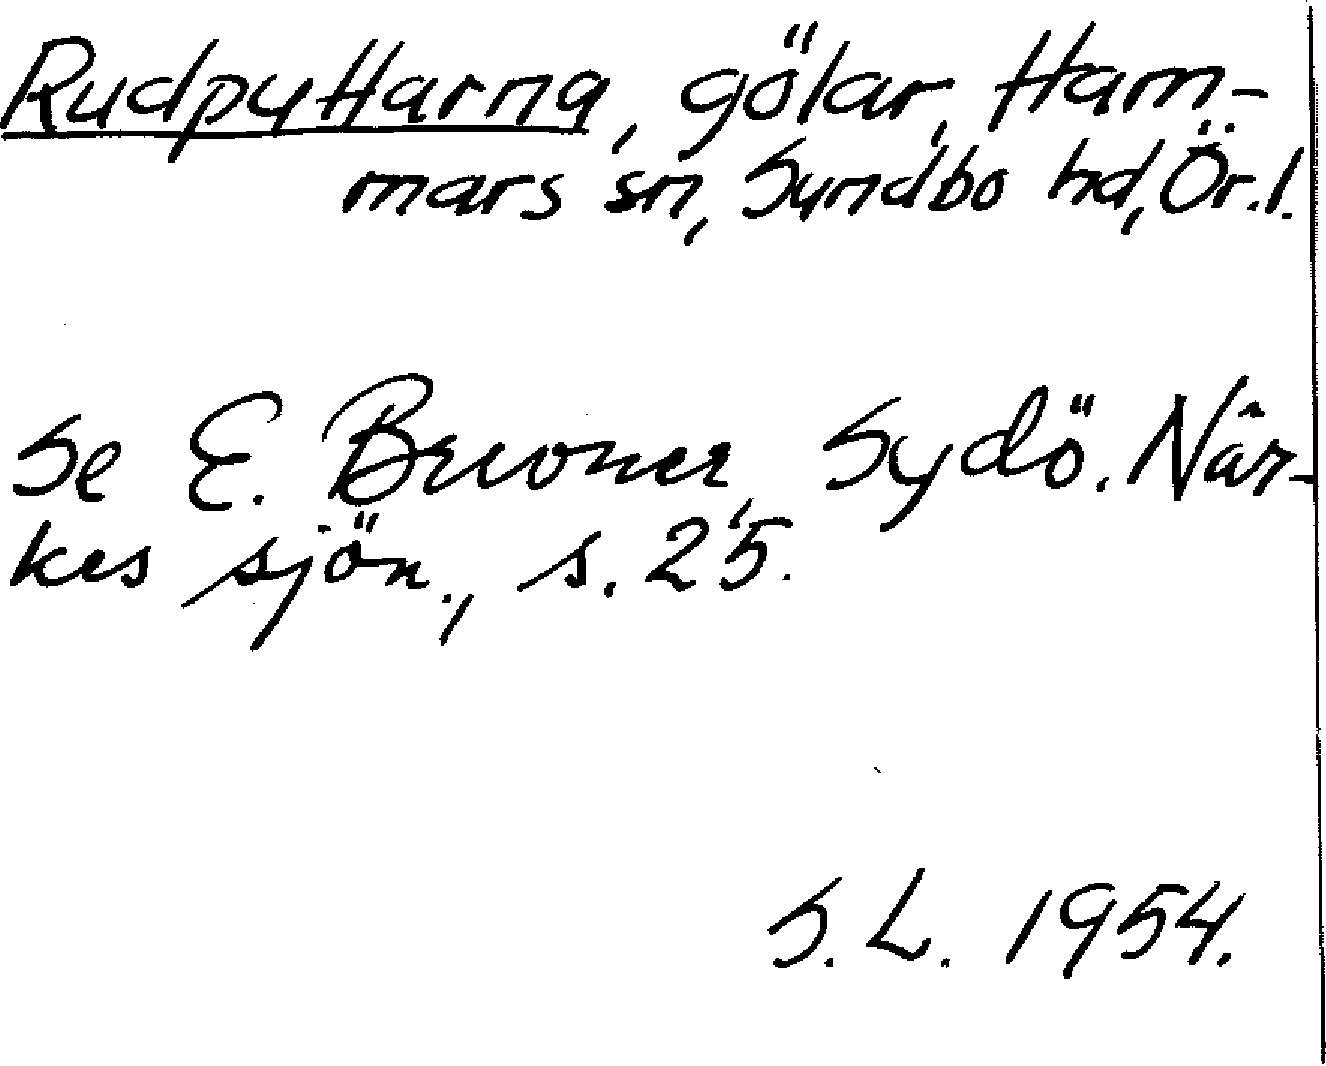 Rudpyttarna, gölar, Ham-
mars sn, Sundbo hd, Ör. l.
Se E. Bruoner, Sydö. När-
kes sjön., s. 25.
S. L. 1954.